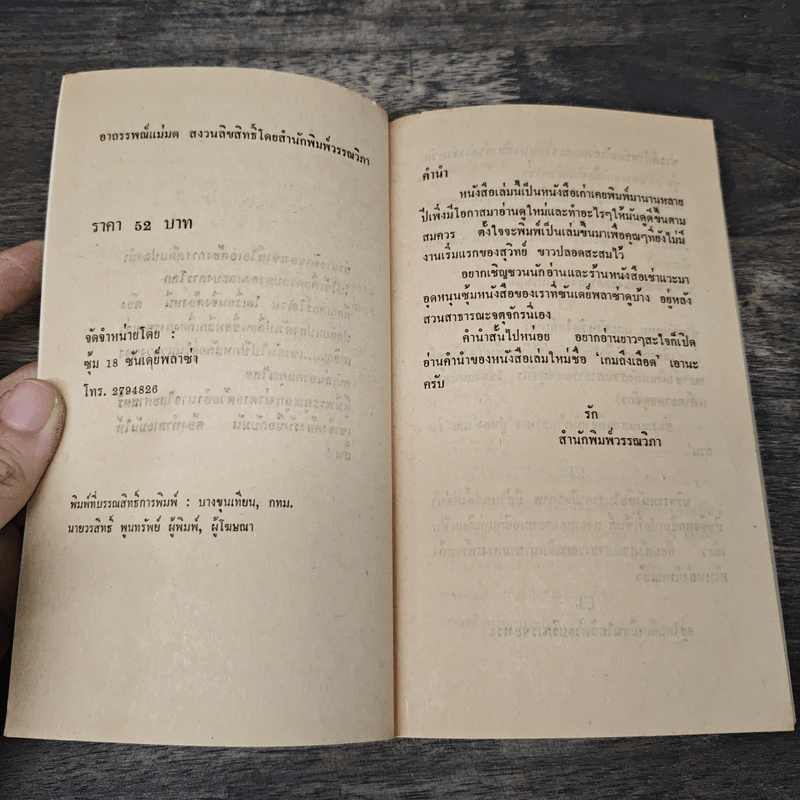 อาถรรพณ์แม่มด สงวนลิขสิทธิ์โดยสำนักพิมพ์วรรณวิภา
ราคา 52 บาท
จัดจำหน่ายโดย :
ซุ้ม 18 ซันเดย์พลาซ่า
โทร. 2794826
พิมพ์ที่บรรณสิทธิ์การพิมพ์ : บางขุนเทียน, กทม.
นายวรสิทธิ์ พูนทรัพย์ ผู้พิมพ์, ผู้โฆษณา
คำนำ
หนังสือเล่มนี้เป็นหนังสือเก่าเคยพิมพ์มานานหลาย
ปีเพิ่งมีโอกาสมาอ่านดูใหม่และทำอะไรๆให้มันดูดีขึ้นตาม
สมควร ตั้งใจจะพิมพ์เป็นเล่มขึ้นมาเพื่อคุณๆที่ยังไม่มี
งานเริ่มแรกของสุวิทย์ ขาวปลอดสะสมไว้
อยากเชิญชวนนักอ่านและร้านหนังสือเช่าแวะมา
อุดหนุนซุ้มหนังสือของเราที่ซันเดย์พลาซ่าดูบ้าง อยู่หลัง
สวนสาธารณะจตุจักรนี่เอง
คำนำสั้นไปหน่อย อยากอ่านยาวๆสะใจก็เปิด
อ่านคำนำของหนังสือเล่มใหม่ชื่อ 'เกมลึงเลือด' เอานะ
ครับ
รัก
สำนักพิมพ์วรรณวิภา